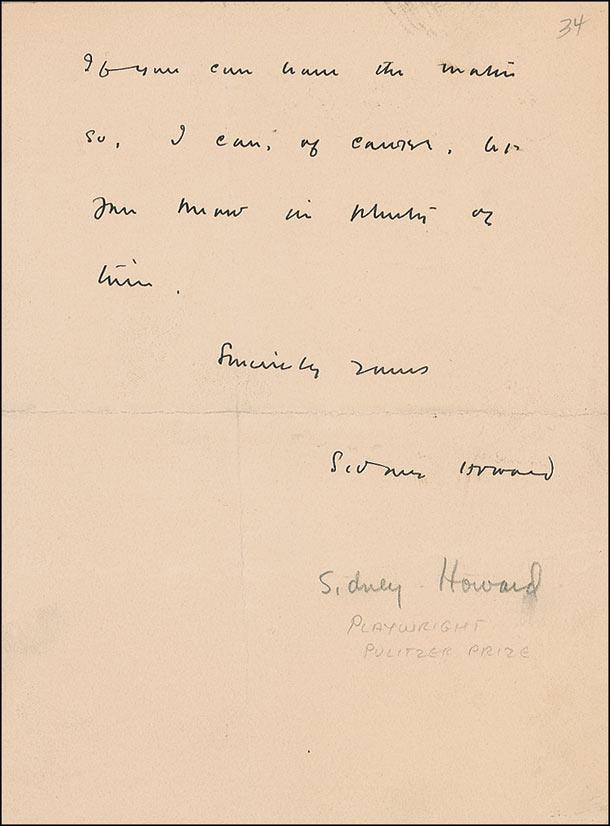 34
If you can have the matter
so, I can, of course, let
you know in plenty of
time.
Sincerely yours
Sidney Howard
Sidney Howard
PLAYWRIGHT
PULITZER PRIZE